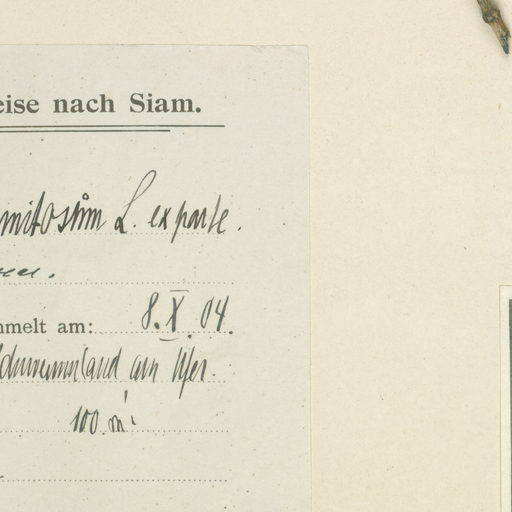 eise nach Siam.
mitosům L. ex parte.
mmelt am: 8. X. 04.
Schwemmland am Ufer.
100 m.